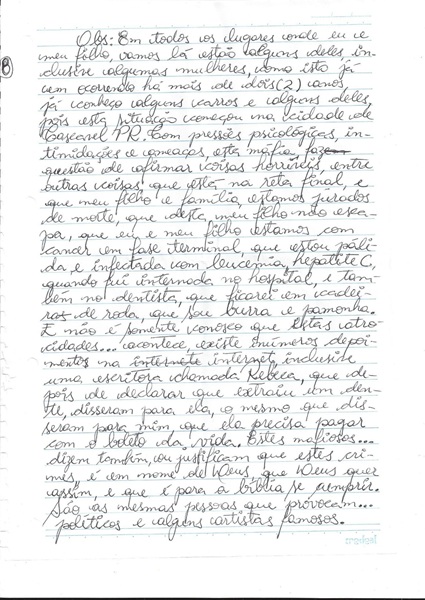 Obs: Em todos os lugares onde eu e
meu filho, vamos lá estão alguns deles, in-
8
clusive algumas mulheres, como isto já
vem ocorendo há mais de dois(2) anos,
já conheço alguns carros e alguns deles,
pois esta situação começou na cidade de
Cascavel PR. Com pressões psicológicas, in-
timidações e ameaças, esta máfia faz
questão de afirmar coisas horríveis, entre
outras coisas, que está na reta final, e
que meu filho e família, estamos jurados
de morte, que desta, meu filho não esca-
pa, que eu e meu filho estamos com
cancer em fase terminal, que estou páli-
da e infectada com leucemia, hepatite C,
quando fui internada no hospital, e tam-
bém no dentista, que ficarei em cadei-
ras de roda, que sou burra e pamonha.
E não é somente conosco que estas atro-
cidades... acontece, existe inúmeros depoi-
mentos na internete internet, inclusive
uma, escritora chamada Rebeca, que de-
pois de declarar que extraiu um den-
te, disseram para ela, o mesmo que dis-
seram para mim, que ela precisa pagar
com o boleto da vida. Estes mafiosos...
dizem também, ou justificam que estes cri-
mes, é em nome de Deus, que Deus quer
assim, e que é para a bíblia se cumprir.
São as mesmas pessoas que provocam...
políticos e alguns artistas famosos.